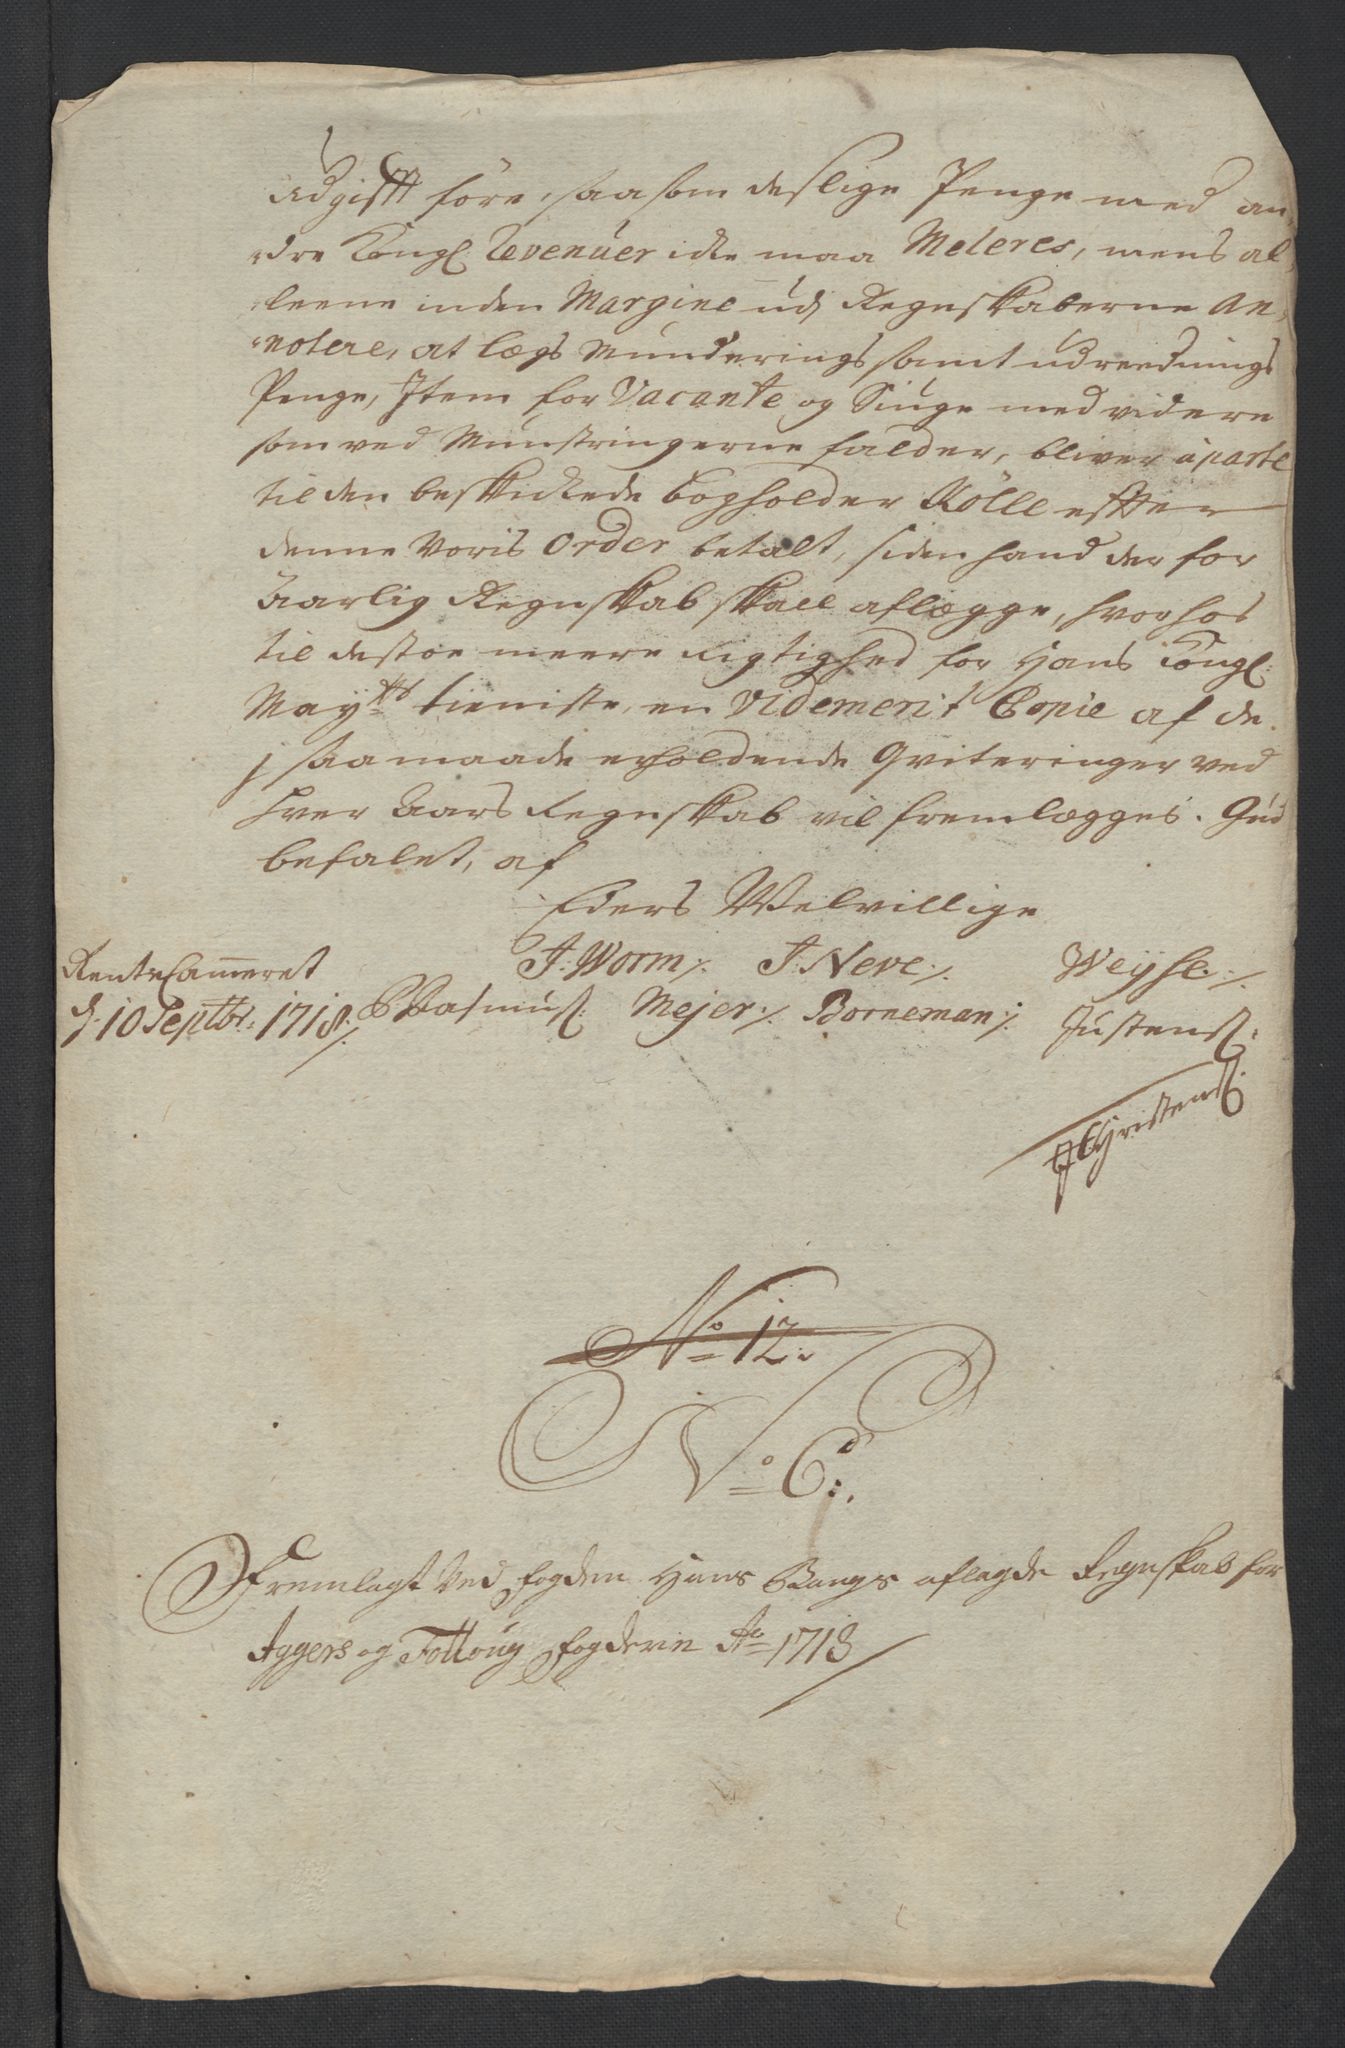 udgifft före, saasom deslige Penge med an-
dre Kongl Revenüer icke maa Meleres, mens al-
leene inden Margine udj Regnskaberne An-
notere, at Lægs Munderings samt udreednings
Penge, Item for Vacante og Siuge med videre
som ved Munstringerne falder, bliver àparte
til den beskickede bogholder Rölle effter
denne Voris Order betalt, siden hand der for
Aarlig Regnskab skall aflægge, hvorhos
til destoe meere Rigtighed for Hans Kongl:
Mayts tieniste, en Videmerit Copie af de
j saamaade erholdende Qviteringer ved
hver Aars Regnskab vil fremlægges. Gud
befalet, af
Eders Velvillige
RenteCammeret J: Worm /. J: Neve /. Weyse /.
d: 10 Septbr: 1718 /. Rasmus: Mejer /. Borneman /. Justens:
Christens:
No 12:
No 6:
Fremlagt Ved fogden Hans Bangs aflagde Regnskab for
Aggers og Folloug fogderie Ao 1718